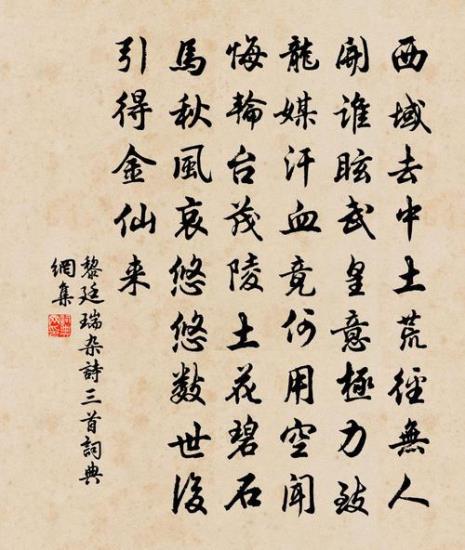 西域去中土荒徑無人
開誰眩武皇意極力致
龍媒汗血竟何用空聞
悔輪台茂陵土花碧石
馬秋風哀悠悠數世後
引得金仙来
黎廷瑞杂詩三首詞典
網集